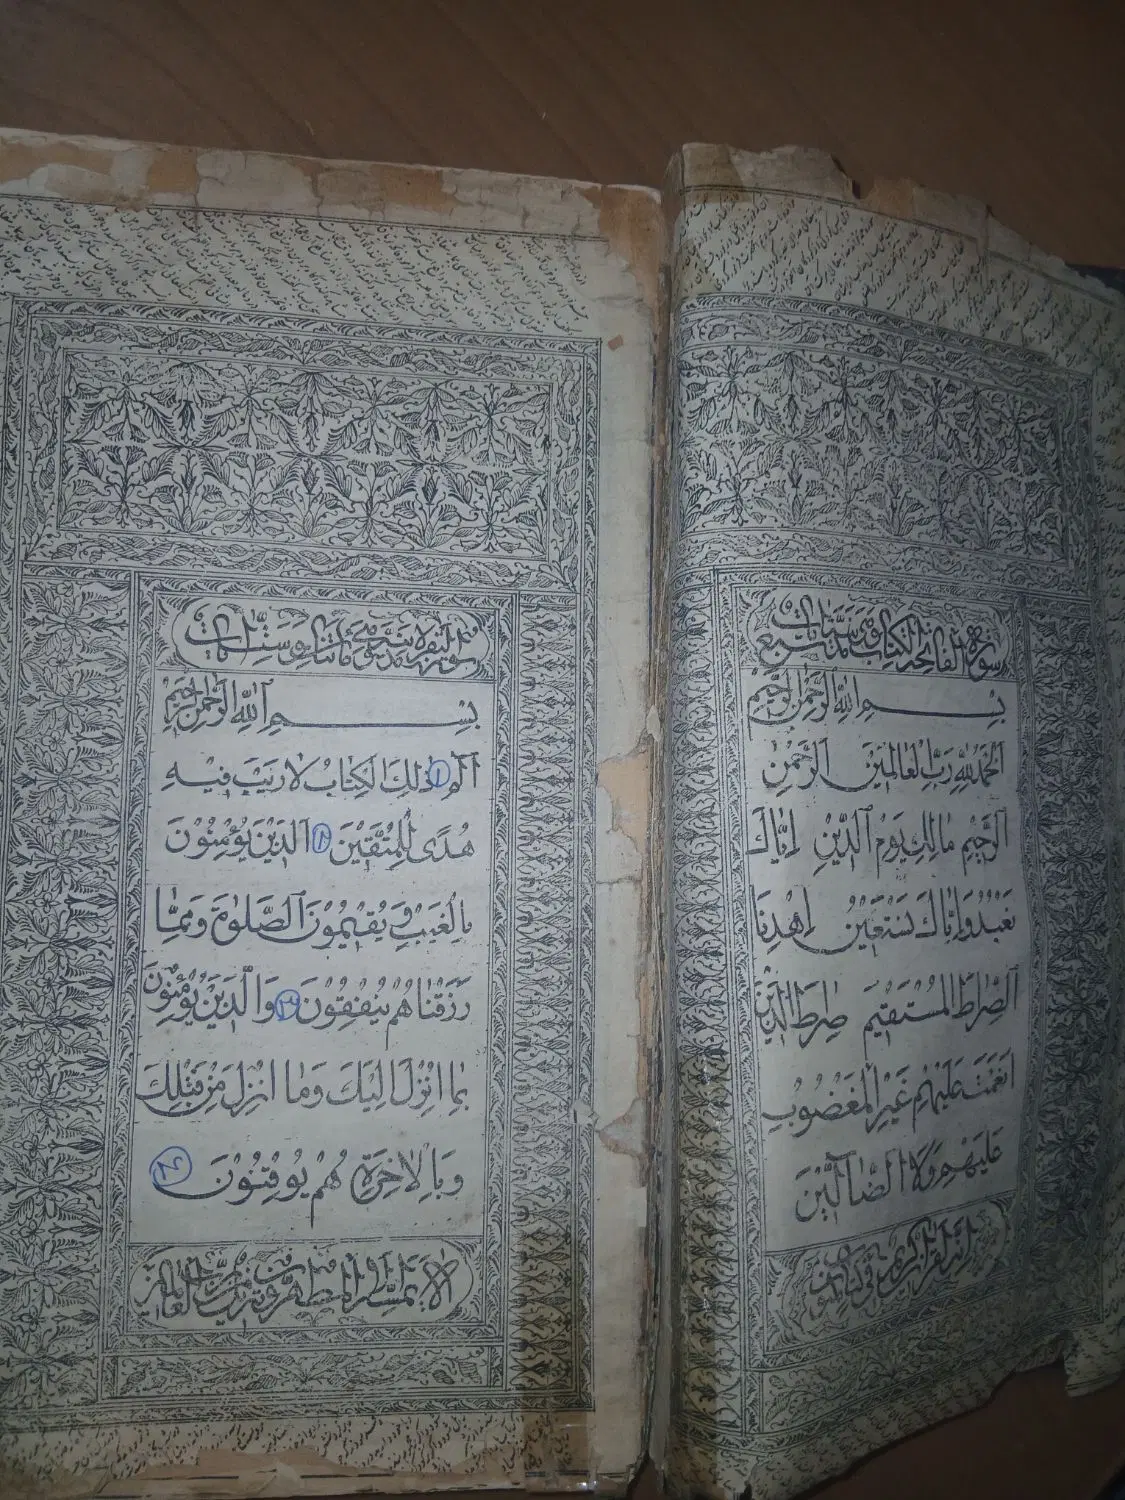 سورة الفاتحة الكتاب وهي سبع
بِسْمِ اللهِ الرَّحْمٰنِ الرَّحِيمِ
اَلْحَمْدُ لِلّٰهِ رَبِّ الْعَالَمِينَ الرَّحْمٰنِ
الرَّحِيمِ مَالِكِ يَوْمِ الدِّينِ اِيَّاكَ
نَعْبُدُ وَاِيَّاكَ نَسْتَعِينُ اِهْدِنَا
الصِّرَاطَ الْمُسْتَقِيمَ صِرَاطَ الَّذِينَ
اَنْعَمْتَ عَلَيْهِمْ غَيْرِ الْمَغْضُوبِ
عَلَيْهِمْ وَلَا الضَّالِّينَ
انه لقران كريم في كتاب مكنون
سورة البقرة مائتان وست
بِسْمِ اللهِ الرَّحْمٰنِ الرَّحِيمِ
الٓمٓ ١ ذٰلِكَ الْكِتَابُ لَا رَيْبَ فِيهِ
هُدًى لِلْمُتَّقِينَ ٢ اَلَّذِينَ يُؤْمِنُونَ
بِالْغَيْبِ وَيُقِيمُونَ الصَّلٰوةَ وَمِمَّا
رَزَقْنَاهُمْ يُنْفِقُونَ ٣ وَالَّذِينَ يُؤْمِنُونَ
بِمَا اُنْزِلَ اِلَيْكَ وَمَا اُنْزِلَ مِنْ قَبْلِكَ
وَبِالْاٰخِرَةِ هُمْ يُوقِنُونَ ٤
لا يمسه الا المطهرون تنزيل من رب العالمين